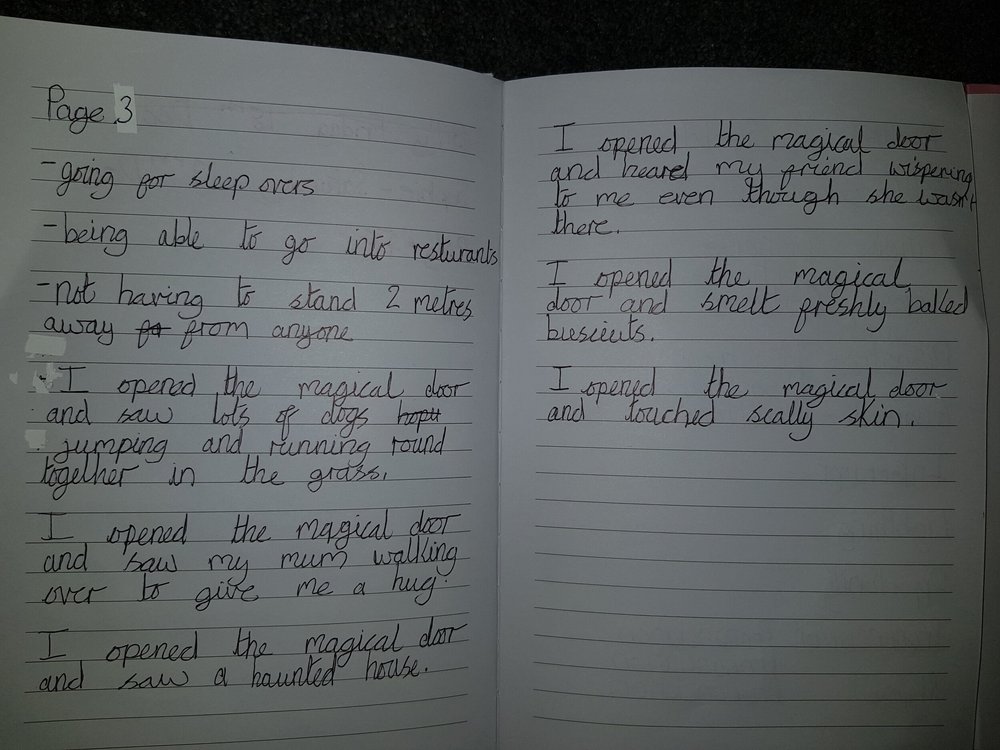 Page 3
-going for sleep overs
-being able to go into resturants
-not having to stand 2 metres
away fo from anyone
I opened the magical door
and saw lots of dogs
jumping and running round
together in the grass.
I opened the magical door
and saw my mum walking
over to give me a hug.
I opened the magical door
and saw a haunted house.
I opened the magical door
and heared my friend wispering
to me even though she wasn't
there.
I opened the magical
door and smelt freshly baked
buscuits.
I opened the magical door
and touched scally skin.